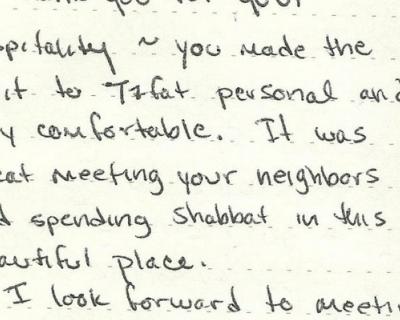 you for your
spitality ~ you made the
it to Tzfat personal and
y comfortable. It was
eat meeting your neighbors
d spending Shabbat in this
autiful place.
I look forward to meeti